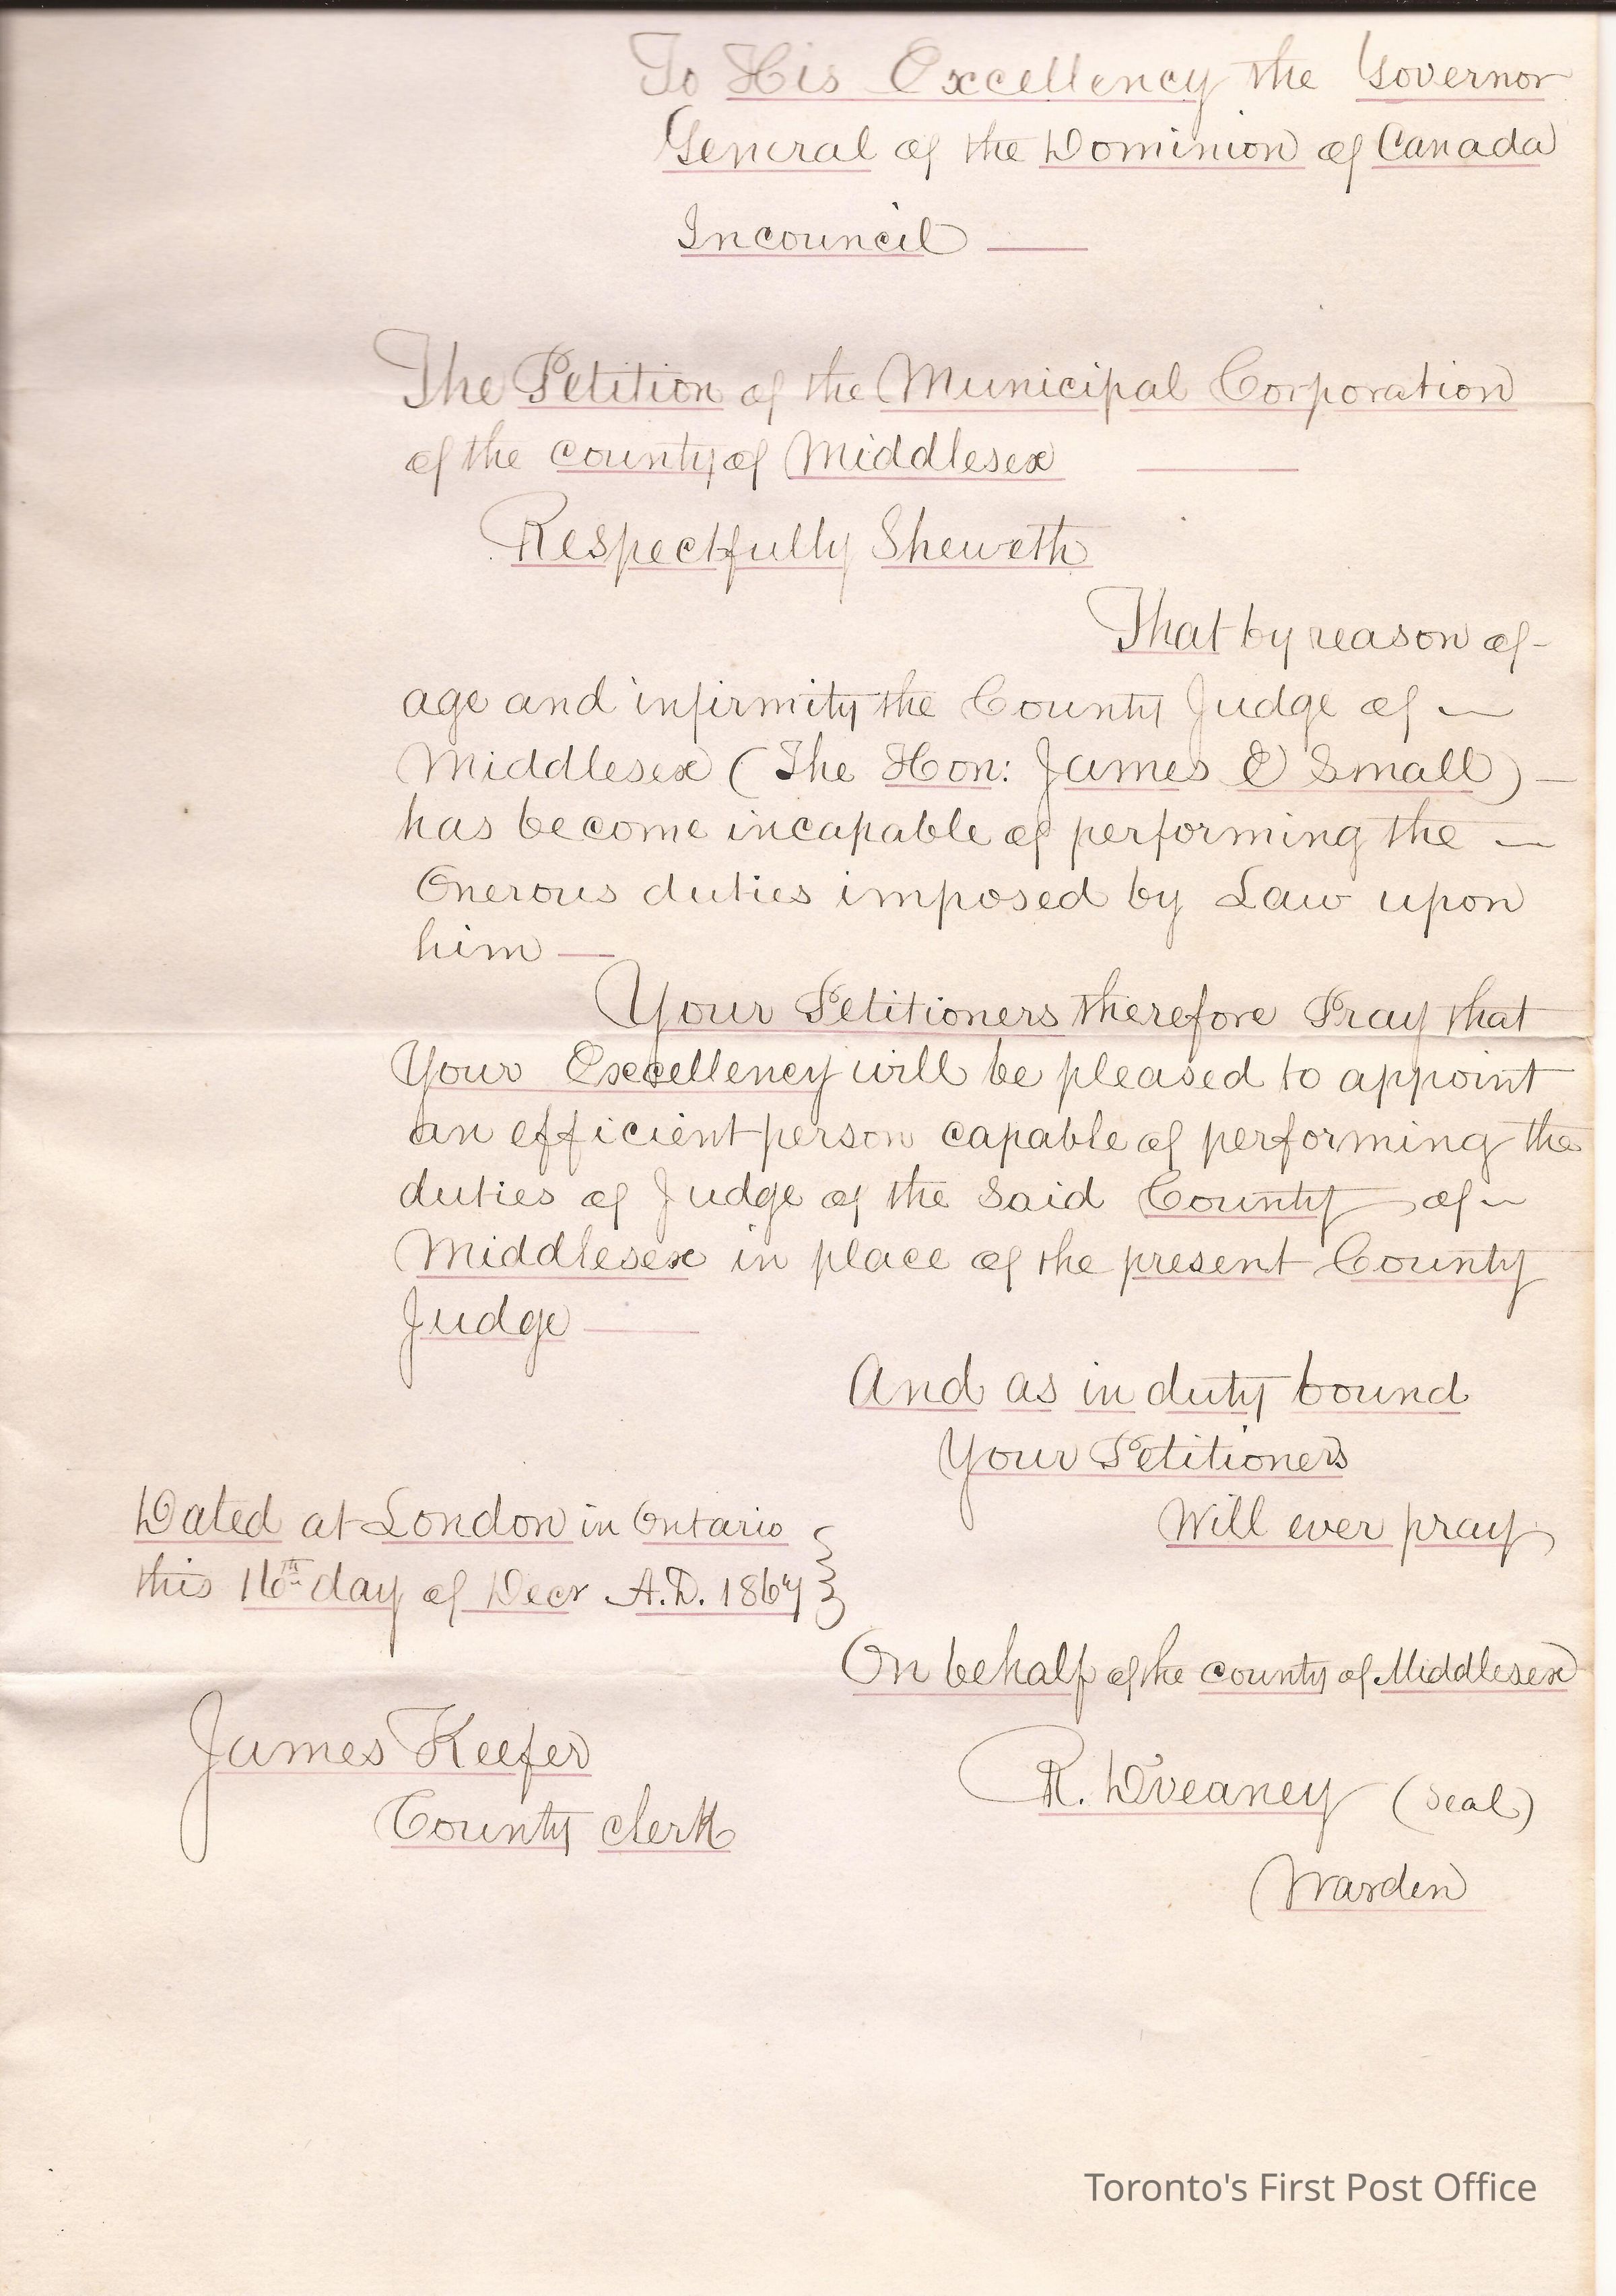 To His Excellency the Governor
General of the Dominion of Canada
Incouncil
The Petition of the Municipal Corporation
of the county of Middlesex
Respectfully Sheweth
That by reason of
age and infirmity the County Judge of
Middlesex (The Hon: James E Small)
has become incapable of performing the
Onerous duties imposed by Law upon
him
Your Petitioners therefore Pray that
Your Excellency will be pleased to appoint
an efficient person capable of performing the
duties of Judge of the Said County of
Middlesex in place of the present County
Judge
And as in duty bound
Your Petitioners
Will ever pray
Dated at London in Ontario
this 16th day of Decr A.D. 1867
On behalf of the county of Middlesex
James Keefer
County clerk
R. (Seal)
Warden
Toronto's First Post Office